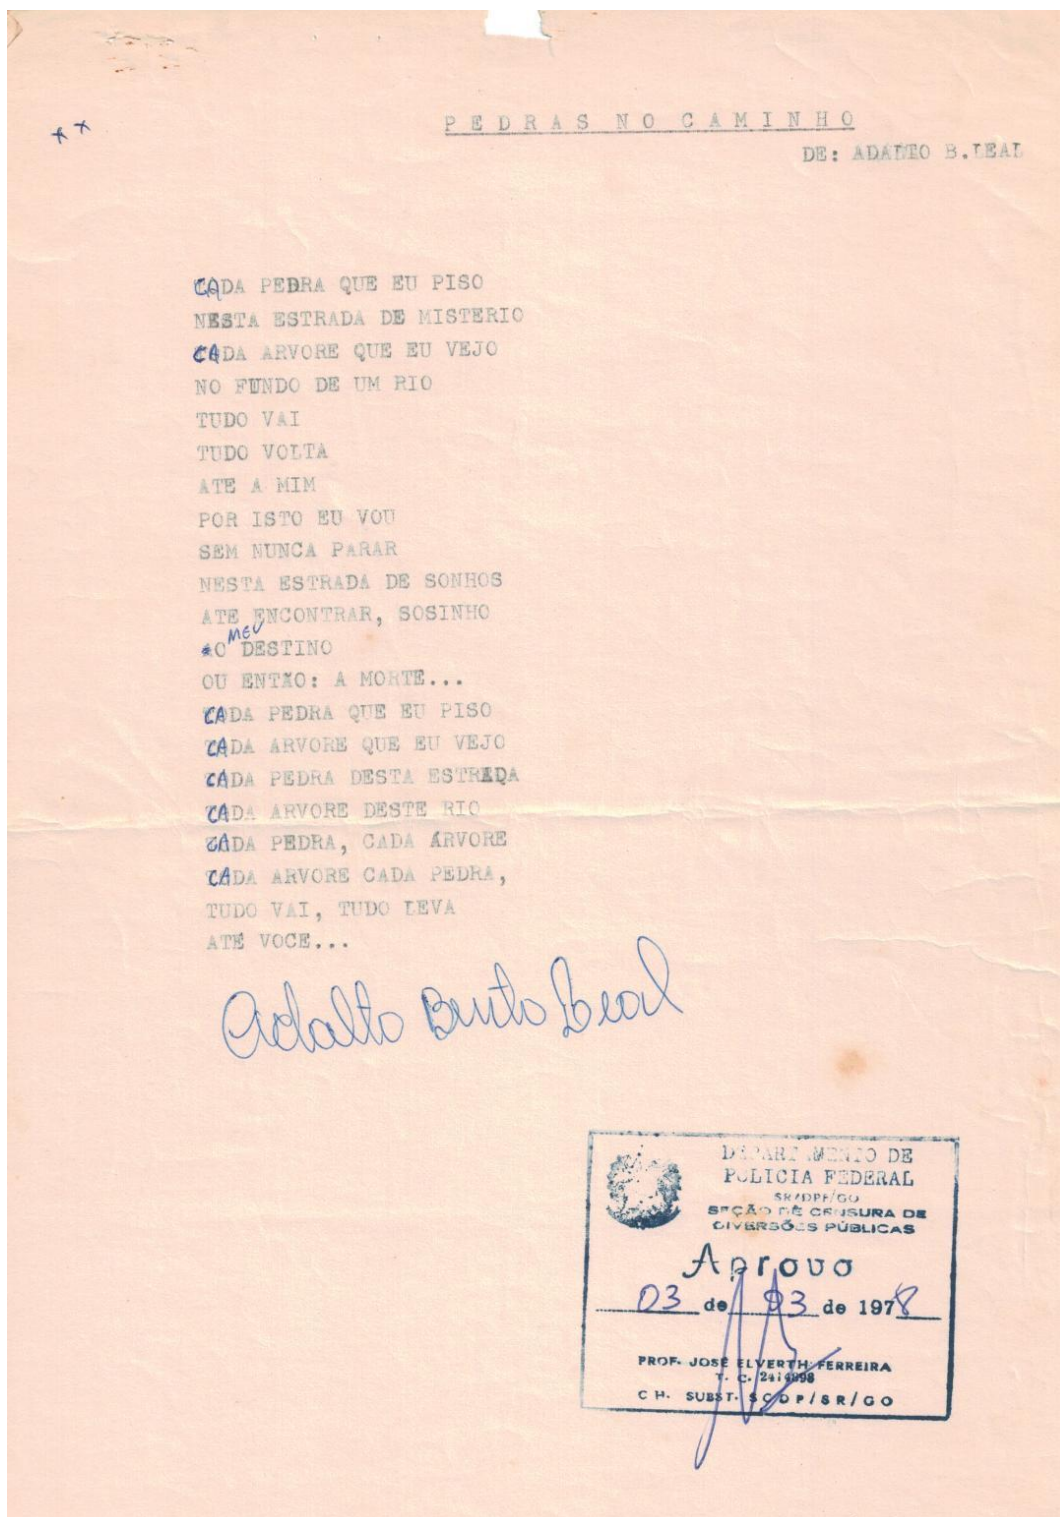 PEDRAS NO CAMINHO
DE: ADALTO B. LEAL
CADA PEDRA QUE EU PISO
NESTA ESTRADA DE MISTERIO
CADA ARVORE QUE EU VEJO
NO FUNDO DE UM RIO
TUDO VAI
TUDO VOLTA
ATE A MIM
POR ISTO EU VOU
SEM NUNCA PARAR
NESTA ESTRADA DE SONHOS
ATE ENCONTRAR, SOSINHO
AO MEU DESTINO
OU ENTÃO: A MORTE...
CADA PEDRA QUE EU PISO
CADA ARVORE QUE EU VEJO
CADA PEDRA DESTA ESTRADA
CADA ARVORE DESTE RIO
CADA PEDRA, CADA ÁRVORE
CADA ARVORE CADA PEDRA,
TUDO VAI, TUDO LEVA
ATÉ VOCE...
Adalto Bento Leal
DEPARTAMENTO DE
POLICIA FEDERAL
SR/DPF/GO
SEÇÃO DE CENSURA DE
DIVERSÕES PÚBLICAS
Aprovo
03 de 03 de 1978
PROF. JOSÉ ELVERTH FERREIRA
T. C. 2414898
CH. SUBST. SCDP/SR/GO